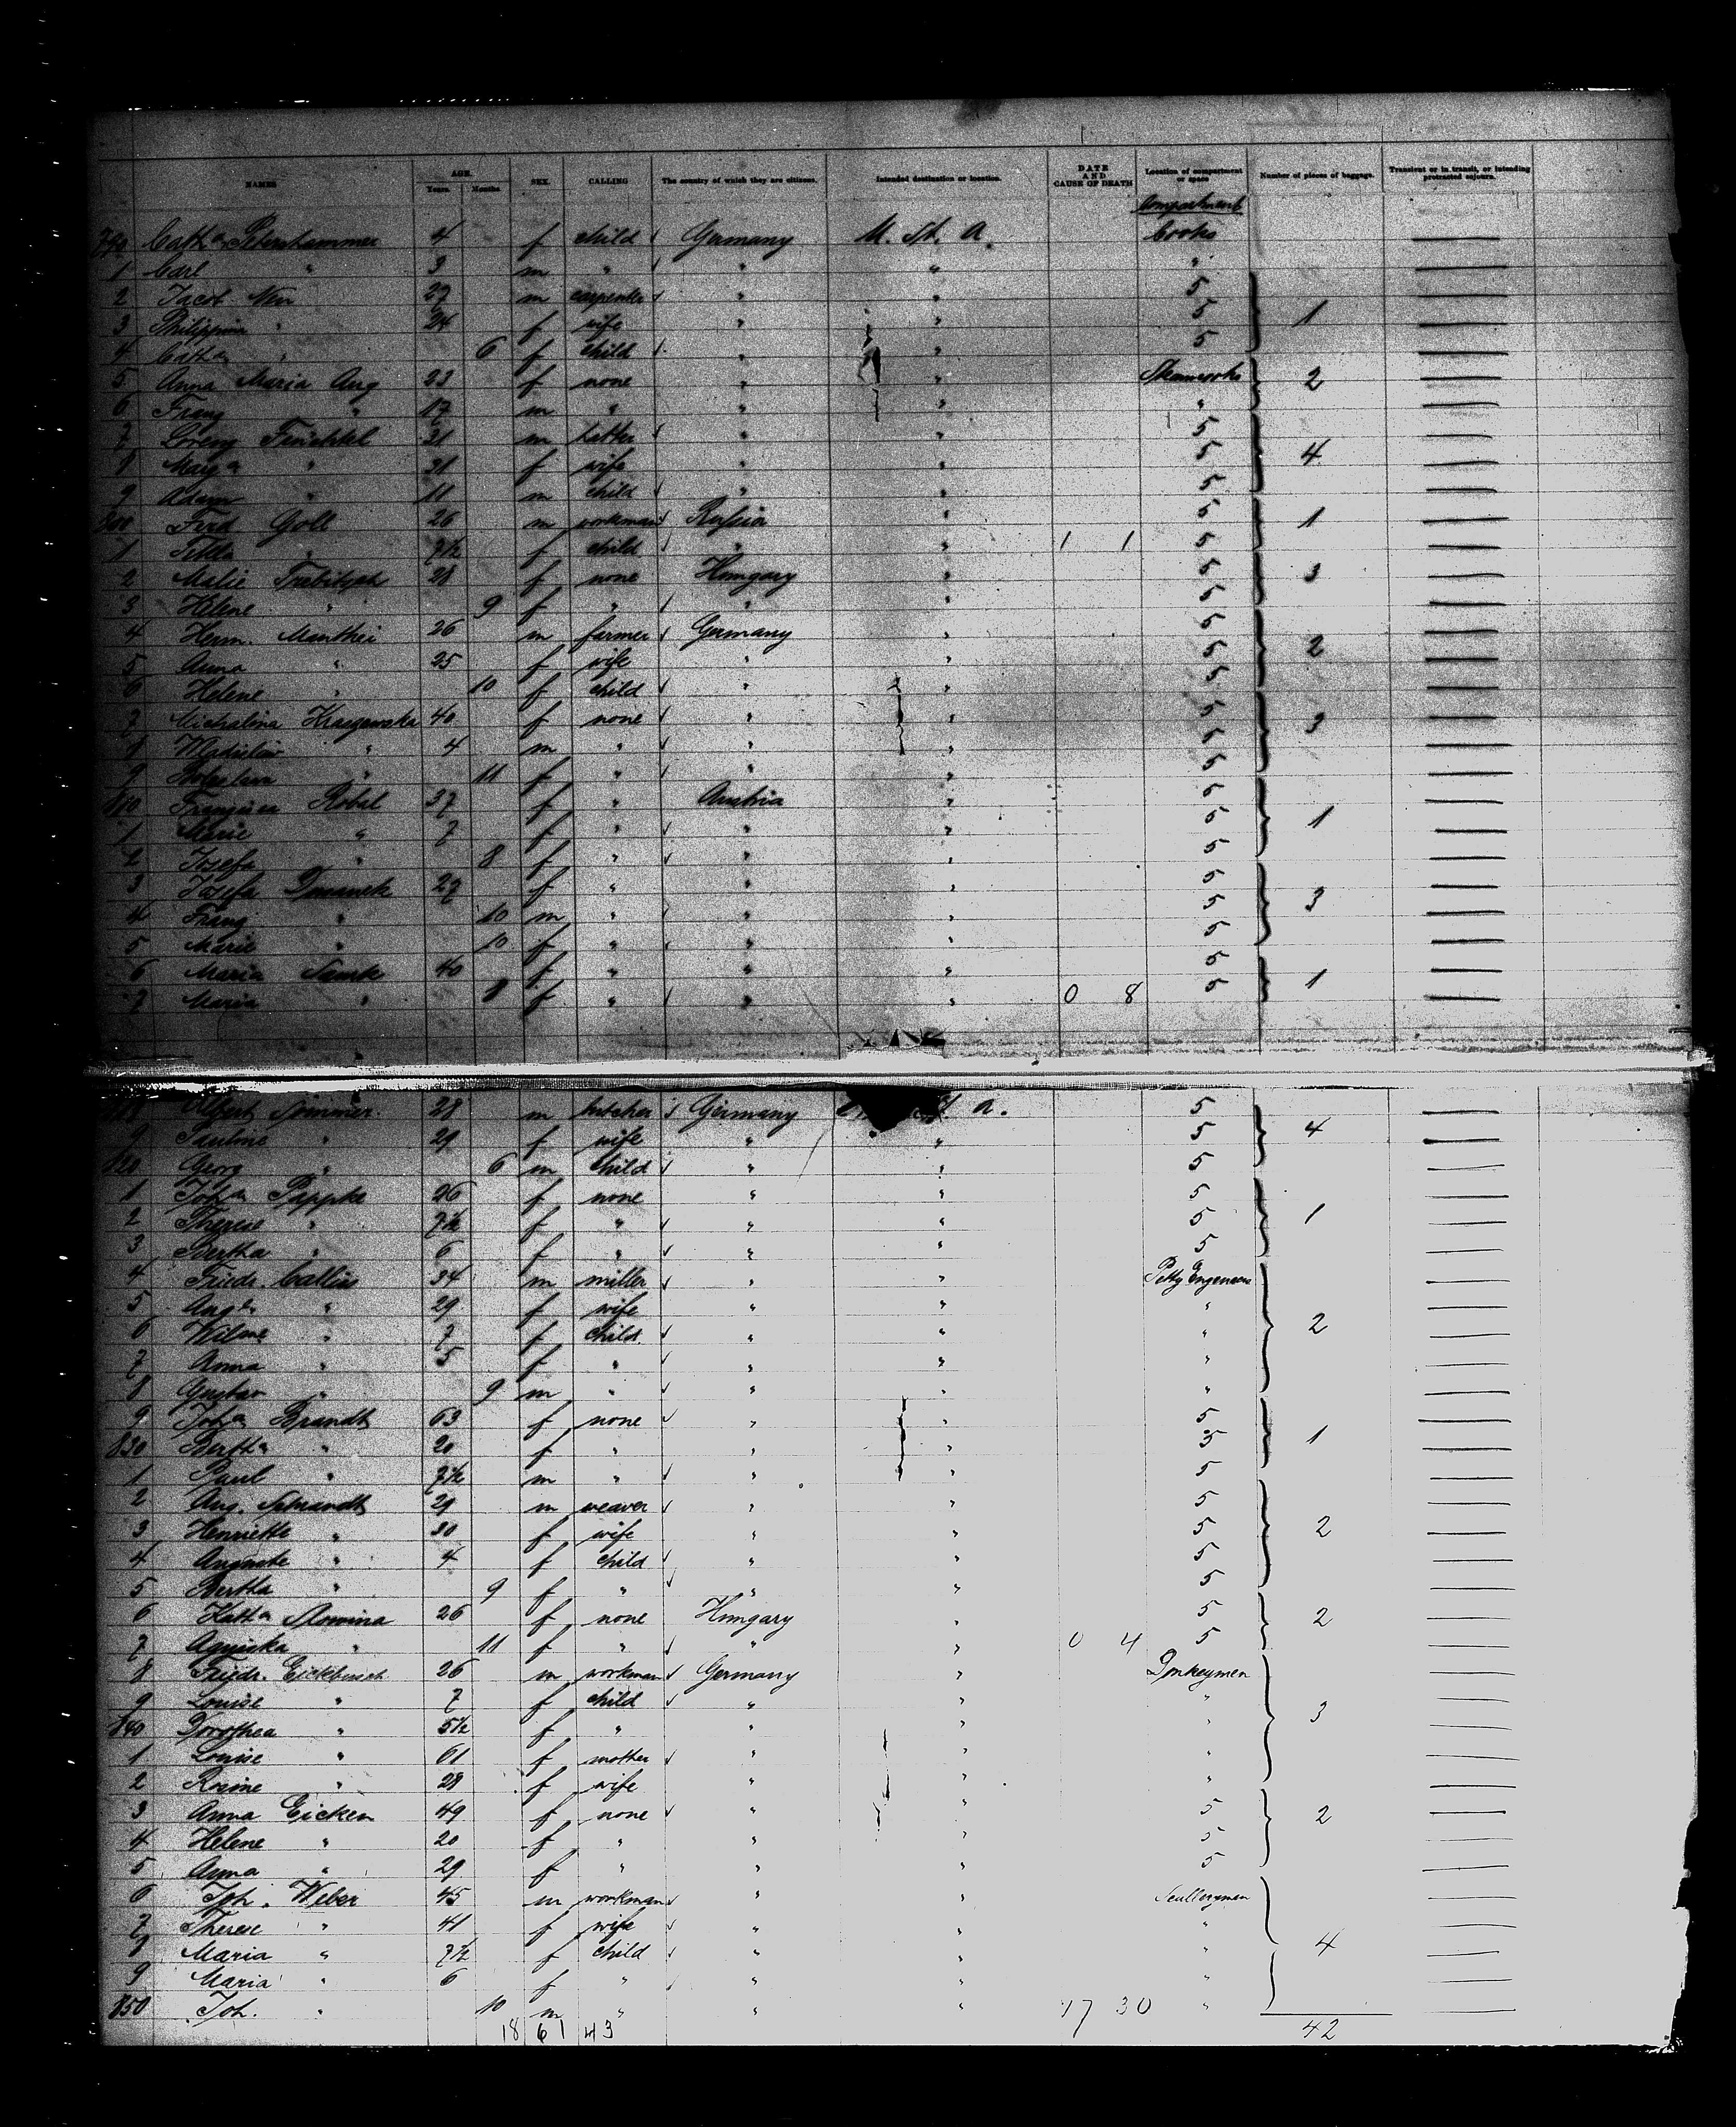 NAMES AGE. Years. Months SEX. CALLING The country of which they are citizens. Intended destination or location. DATE AND CAUSE OF DEATH Location of compartment or space Number of pieces of baggage. Transient or in transit, or intending protracted sojourn.
Compartment
790 Cath.a Petershammer 4 f child Germany U. St. A. Cooks —
1 Carl " 3 m " " " " —
2 Jacob Neu 27 m carpenter " " 5 —
3 Philippina " 24 f wife " " 5 1 —
4 Cath.a " 6 f child " " 5 —
5 Anna Maria Aug 23 f none " " 2 —
6 Franz " 17 m " " " " —
7 Lorenz 31 m hatter " " 5 —
8 Marg.a " 31 f wife " " 5 4 —
9 Adam " 11 m child " " 5 —
800 Ferd Goll 26 m workman Russia " 5 1 —
1 " 7½ f child " " 1 1 5 —
2 Malie 28 f none Hungary " 5 3 —
3 Helene " 9 f " " " 5 —
4 Herm. Manthei 26 m farmer Germany " 5 —
5 Anna " 25 f wife " " 5 2 —
6 Helene " 10 f child " " 5 —
7 Michalina Kraszewska 40 f none " " 5 3 —
8 Wladislaw " 4 m " " " 5 —
9 " 11 f " " " 5 —
810 Robal 37 f " Austria " 5 —
1 Marie " 7 f " " " 5 1 —
2 Josefa " 8 f " " " 5 —
3 Josefa 27 f " " " 5 —
4 Franz " 10 m " " " 5 3 —
5 Marie " 10 f " " " 5 —
6 Maria 40 f " " " 5 1 —
7 Maria " 8 f " " " 0 8 5 —
818 Albert Sommer 28 m butcher Germany St. A. 5 —
9 Pauline " 29 f wife " " 5 4 —
820 Georg " 6 m child " " 5 —
1 Joh.a Pippke 26 f none " " 5 —
2 Therese " 7½ f " " " 5 1 —
3 Bertha " 6 f " " " 5 —
4 Friedr. Callies 34 m miller " " Petty —
5 Aug.e " 29 f wife " " " —
6 Wil.ne " 7 f child " " " 2 —
7 Anna " 5 f " " " " —
8 Gustav " 9 m " " " " —
9 Joh.a Brandt 63 f none " " 5 —
830 Berth.a " 20 f " " " 5 1 —
1 Paul " 7½ m " " " 5 —
2 Aug. Schrandt 29 m weaver " " 5 —
3 Henriette " 30 f wife " " 5 2 —
4 Auguste " 4 f child " " 5 —
5 Bertha " 9 f " " " 5 —
6 Kath.a 26 f none Hungary " 5 2 —
7 " 11 f " " " 0 4 5 —
8 Friedr. Eickbusch 26 m workman Germany " Donkeymen —
9 Louise " 7 f child " " " —
840 Dorothea " 5½ f " " " " 3 —
1 Louise " 61 f mother " " " —
2 Rosine " 28 f wife " " " —
3 Anna Eicken 49 f none " " 5 2 —
4 Helene " 20 f " " " 5 —
5 Anna " 29 f " " " 5 —
6 Joh. Weber 45 m workman " " Scullerymen —
7 Therese " 41 f wife " " " —
8 Maria " 7½ f child " " " 4 —
9 Maria " 6 f " " " " —
850 Joh. " 10 m " " " 17 30 " —
18 61 43 42